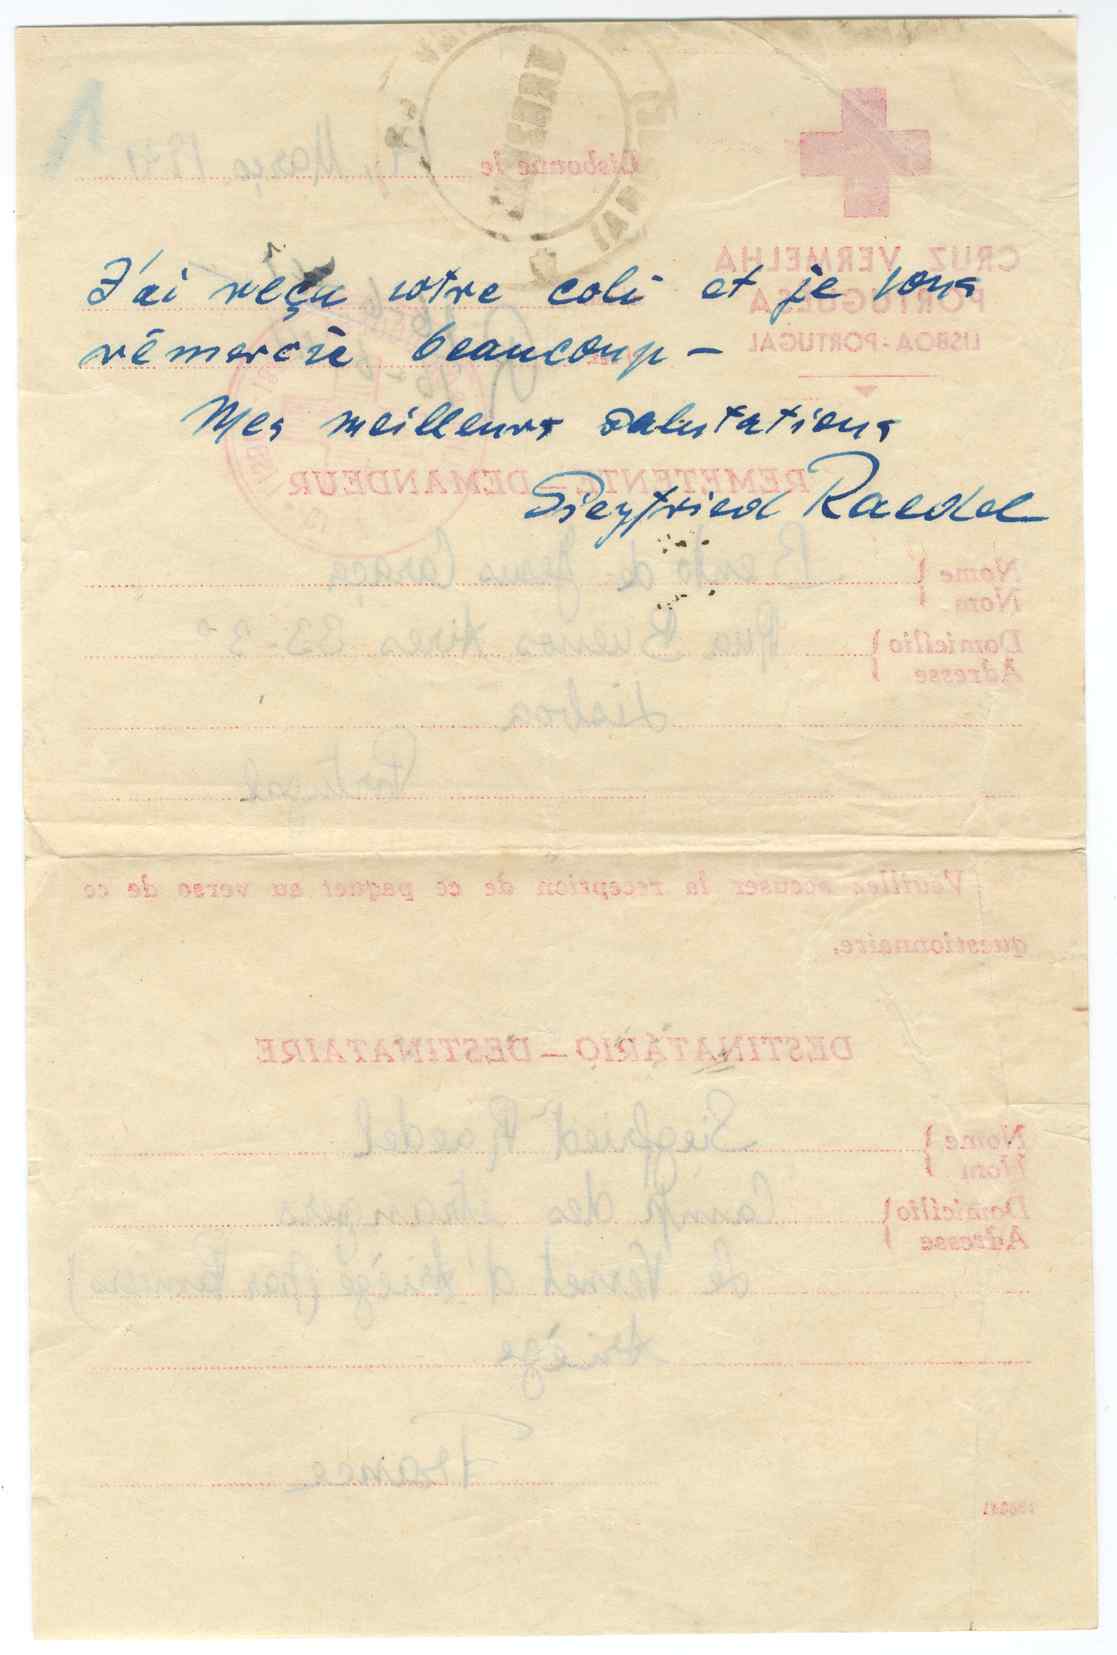 Lisbonne le Março 1941
CRUZ VERMELHA
PORTUGUESA
LISBOA-PORTUGAL
J'ai reçu votre coli et je vous
rémercie beaucoup -
Mes meilleurs salutations
Siegfried Raedel
REMETENTE — DEMANDEUR
Nome
Nom
Bento de Jesus Caraça
Domicílio
Adresse
Rua Buenos Aires 33-3º
Lisboa
Portugal
Veuillez accuser la réception de ce paquet au verso de ce
questionnaire.
DESTINATÁRIO — DESTINATAIRE
Nome
Nom
Siegfried Raedel
Domicílio
Adresse
Camp des étrangers
de Vernet d'Ariège (par Pamiers)
Ariège
France